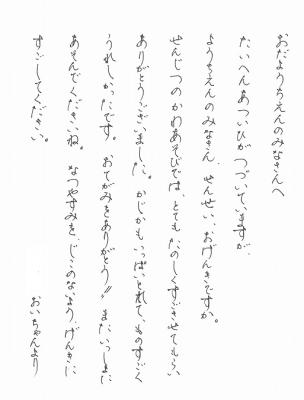 おだようちえんのみなさんへ
たいへんあついひがつづいていますが、
ようちえんのみなさん、せんせい、おげんきですか。
せんじつのかわあそびでは、とてもたのしくすごさせてもらい
ありがとうございました。かじかもいっぱいとれて、ものすごく
うれしかったです。おてがみをありがとう!!またいっしょに
あそんでくださいね。なつやすみを、じこのないよう、げんきに
すごしてください。
おいちゃんより